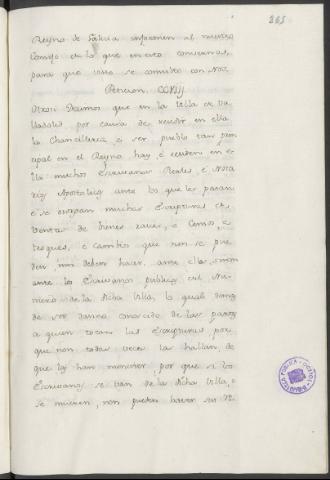 265
Reyno de Galicia informen al nuestro
Consejo de lo que en esto convernas,
para que visto se consulte con Nos.
Peticion. CCVIIJ
Otrosi Decimos que en la Villa de Va
lladolid por causa de residir en ella
la Chancilleria, e ser pueblo tan prin
cipal en el Reyno, hay, e residen en e
lla muchos Escrivanos Reales, e Nota
rios Apostolicos ante los que les pasan
e se otorgan muchas Escripturas de
Ventas de bienes raices, e Censos, e
tesques, e cambios que non se pue
den, nin deben hacer ante ellos sinon
ante los Escrivanos publicos del Nu
mero de la dicha Villa, lo qual demas
de ser danno conocido de las partes
a quien tocan las Escripturas, por
que non todas veces la hallan, de
que las han menester, por que si los
Escrivanos se van de la dicha Villa, o
se mueren, non pueden haver su re